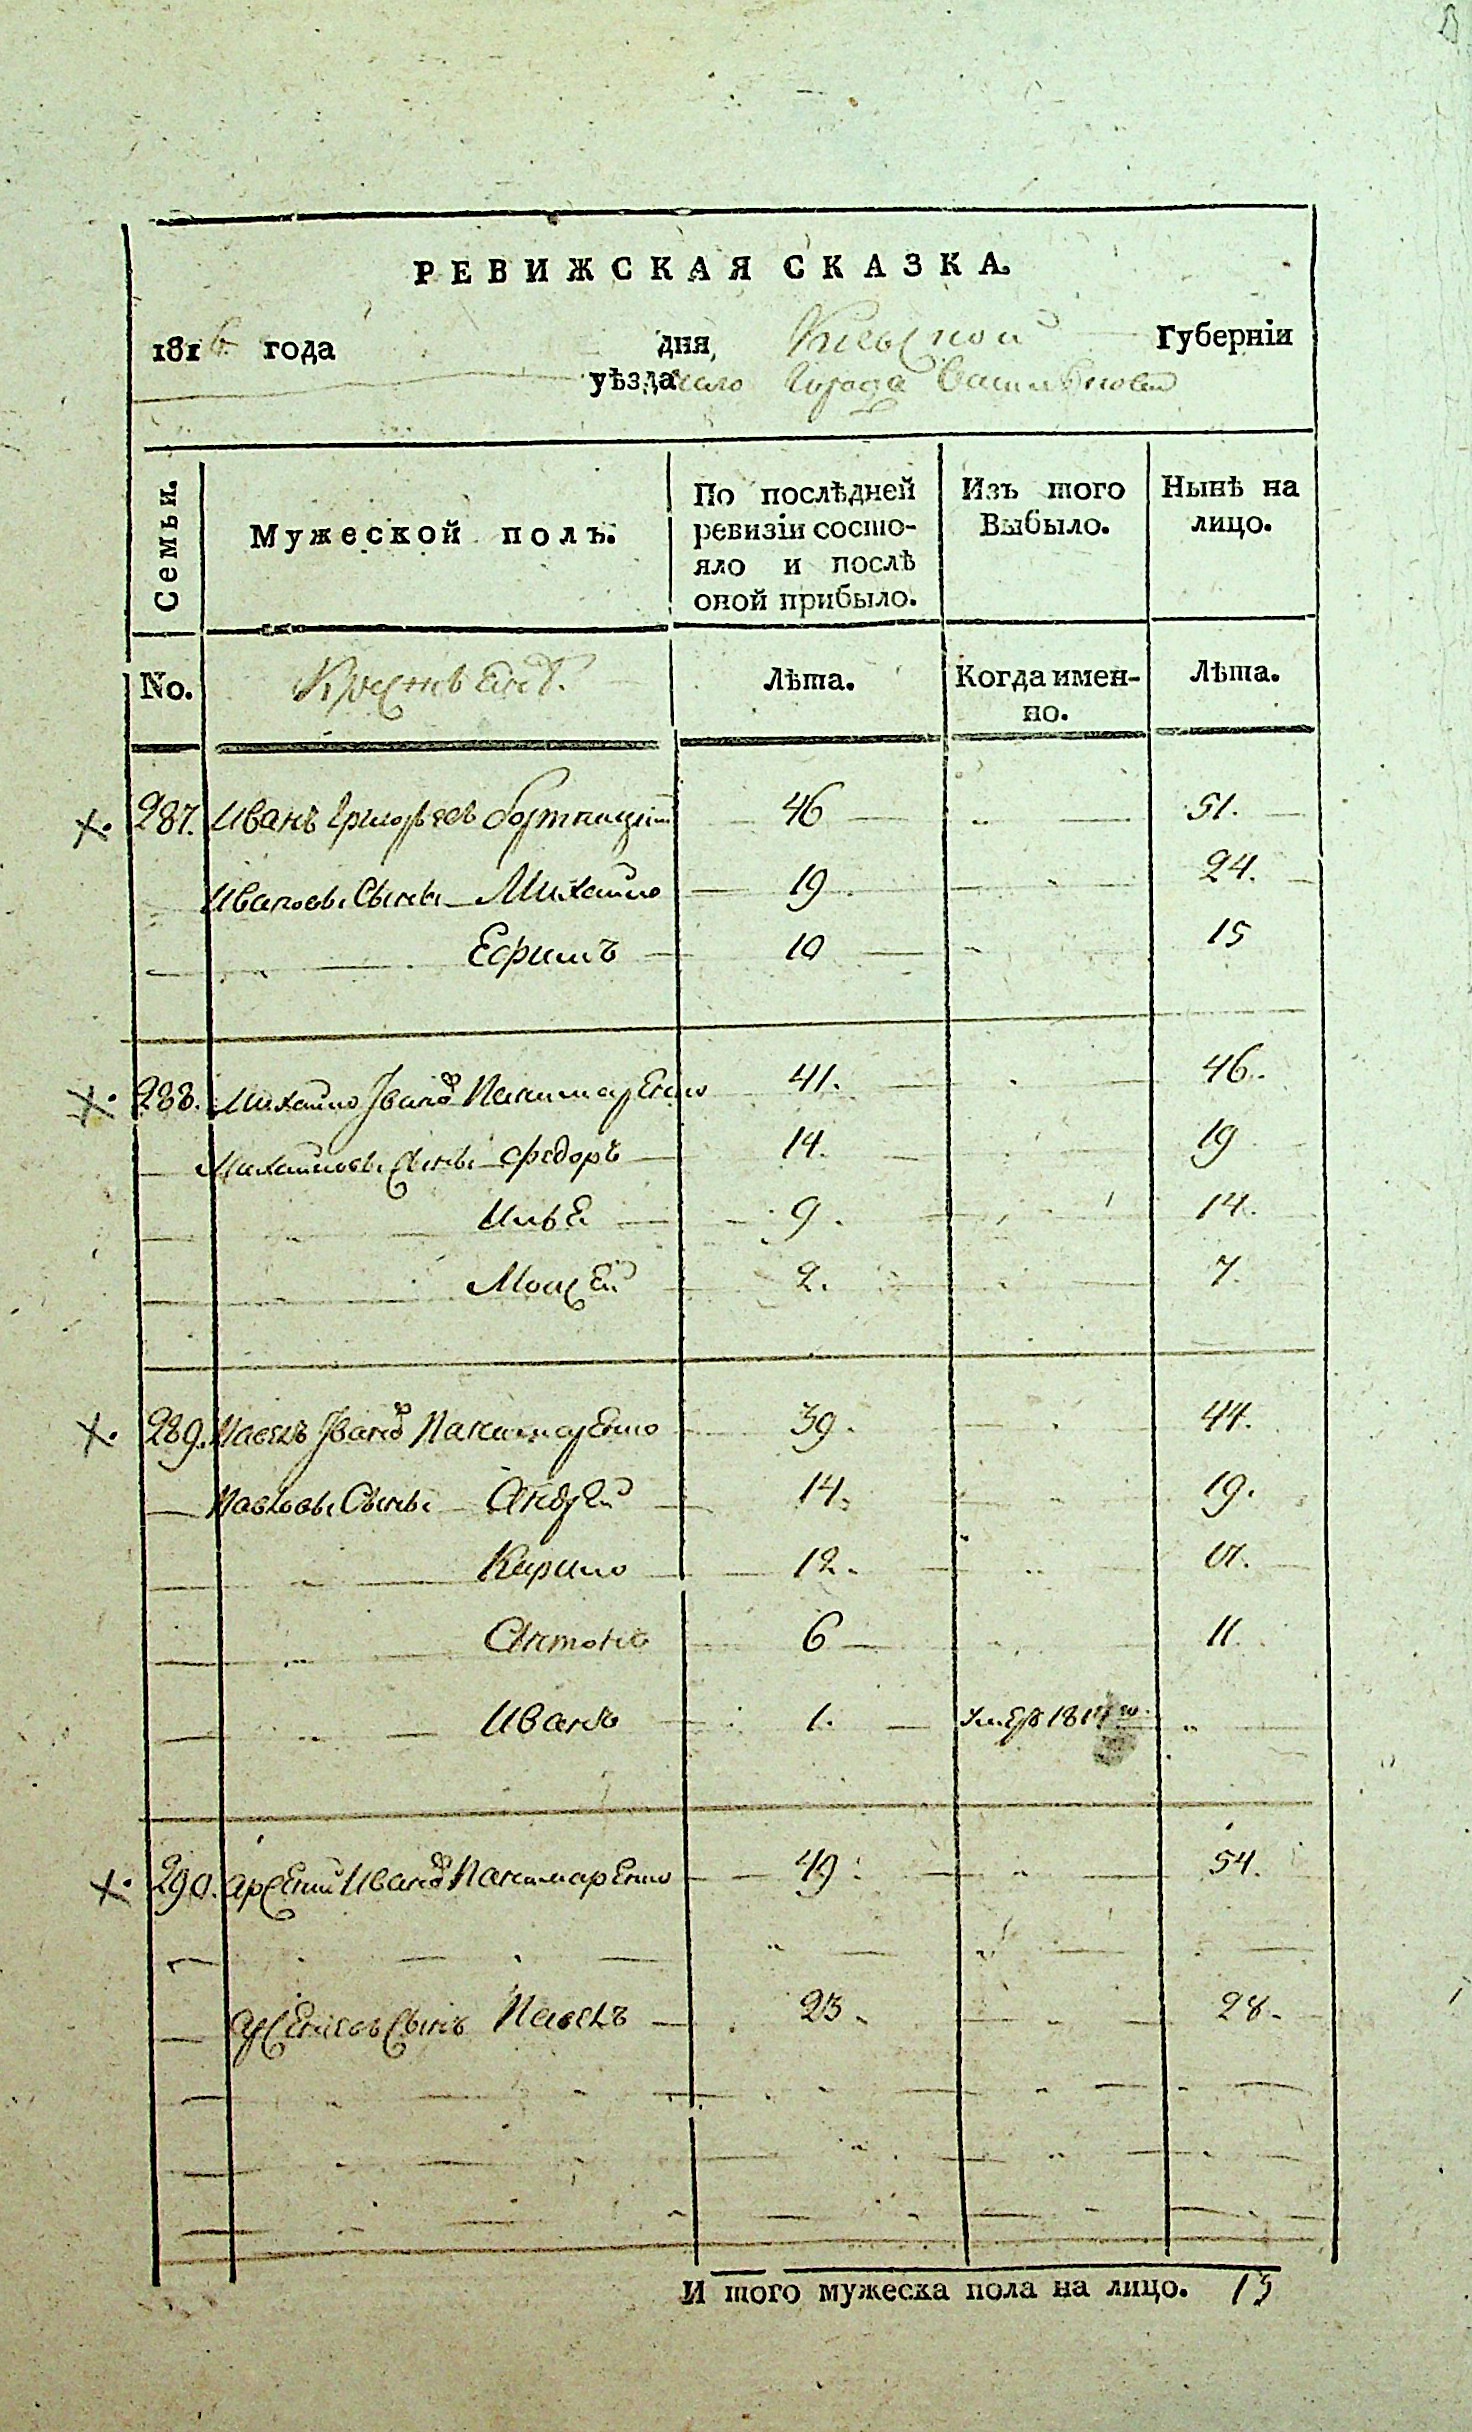 РЕВИЖСКАЯ СКАЗКА.
1816 года дня, Киевской Губерніи
уѣзда города Василькова
Семьи.
Мужеской полъ.
По послѣдней ревизіи состояло и послѣ оной прибыло.
Изъ того Выбыло.
Нынѣ на лицо.
No. Крестьянъ. Лѣта. Когда именно. Лѣта.
287. Иванъ Григорьевъ Бортницкій 46 51.
Ивановы Сыны Михайло 19 24.
Ефимъ 10 15
288. Михайло Іванов 41. 46.
Михайловы Сыны Федоръ 14. 19
Илья 9. 14.
Моисей 2. 7.
289. Павелъ Іванов 39. 44.
Павловы Сыны Андрей 14. 19.
Кирило 12. 17.
Антонъ 6 11.
Иванъ 1. Умеръ 1814 го.
290. Арсеній Иванов 49. 54.
Арсеніевъ Сынъ Павелъ 23. 28.
И того мужеска пола на лицо. 13